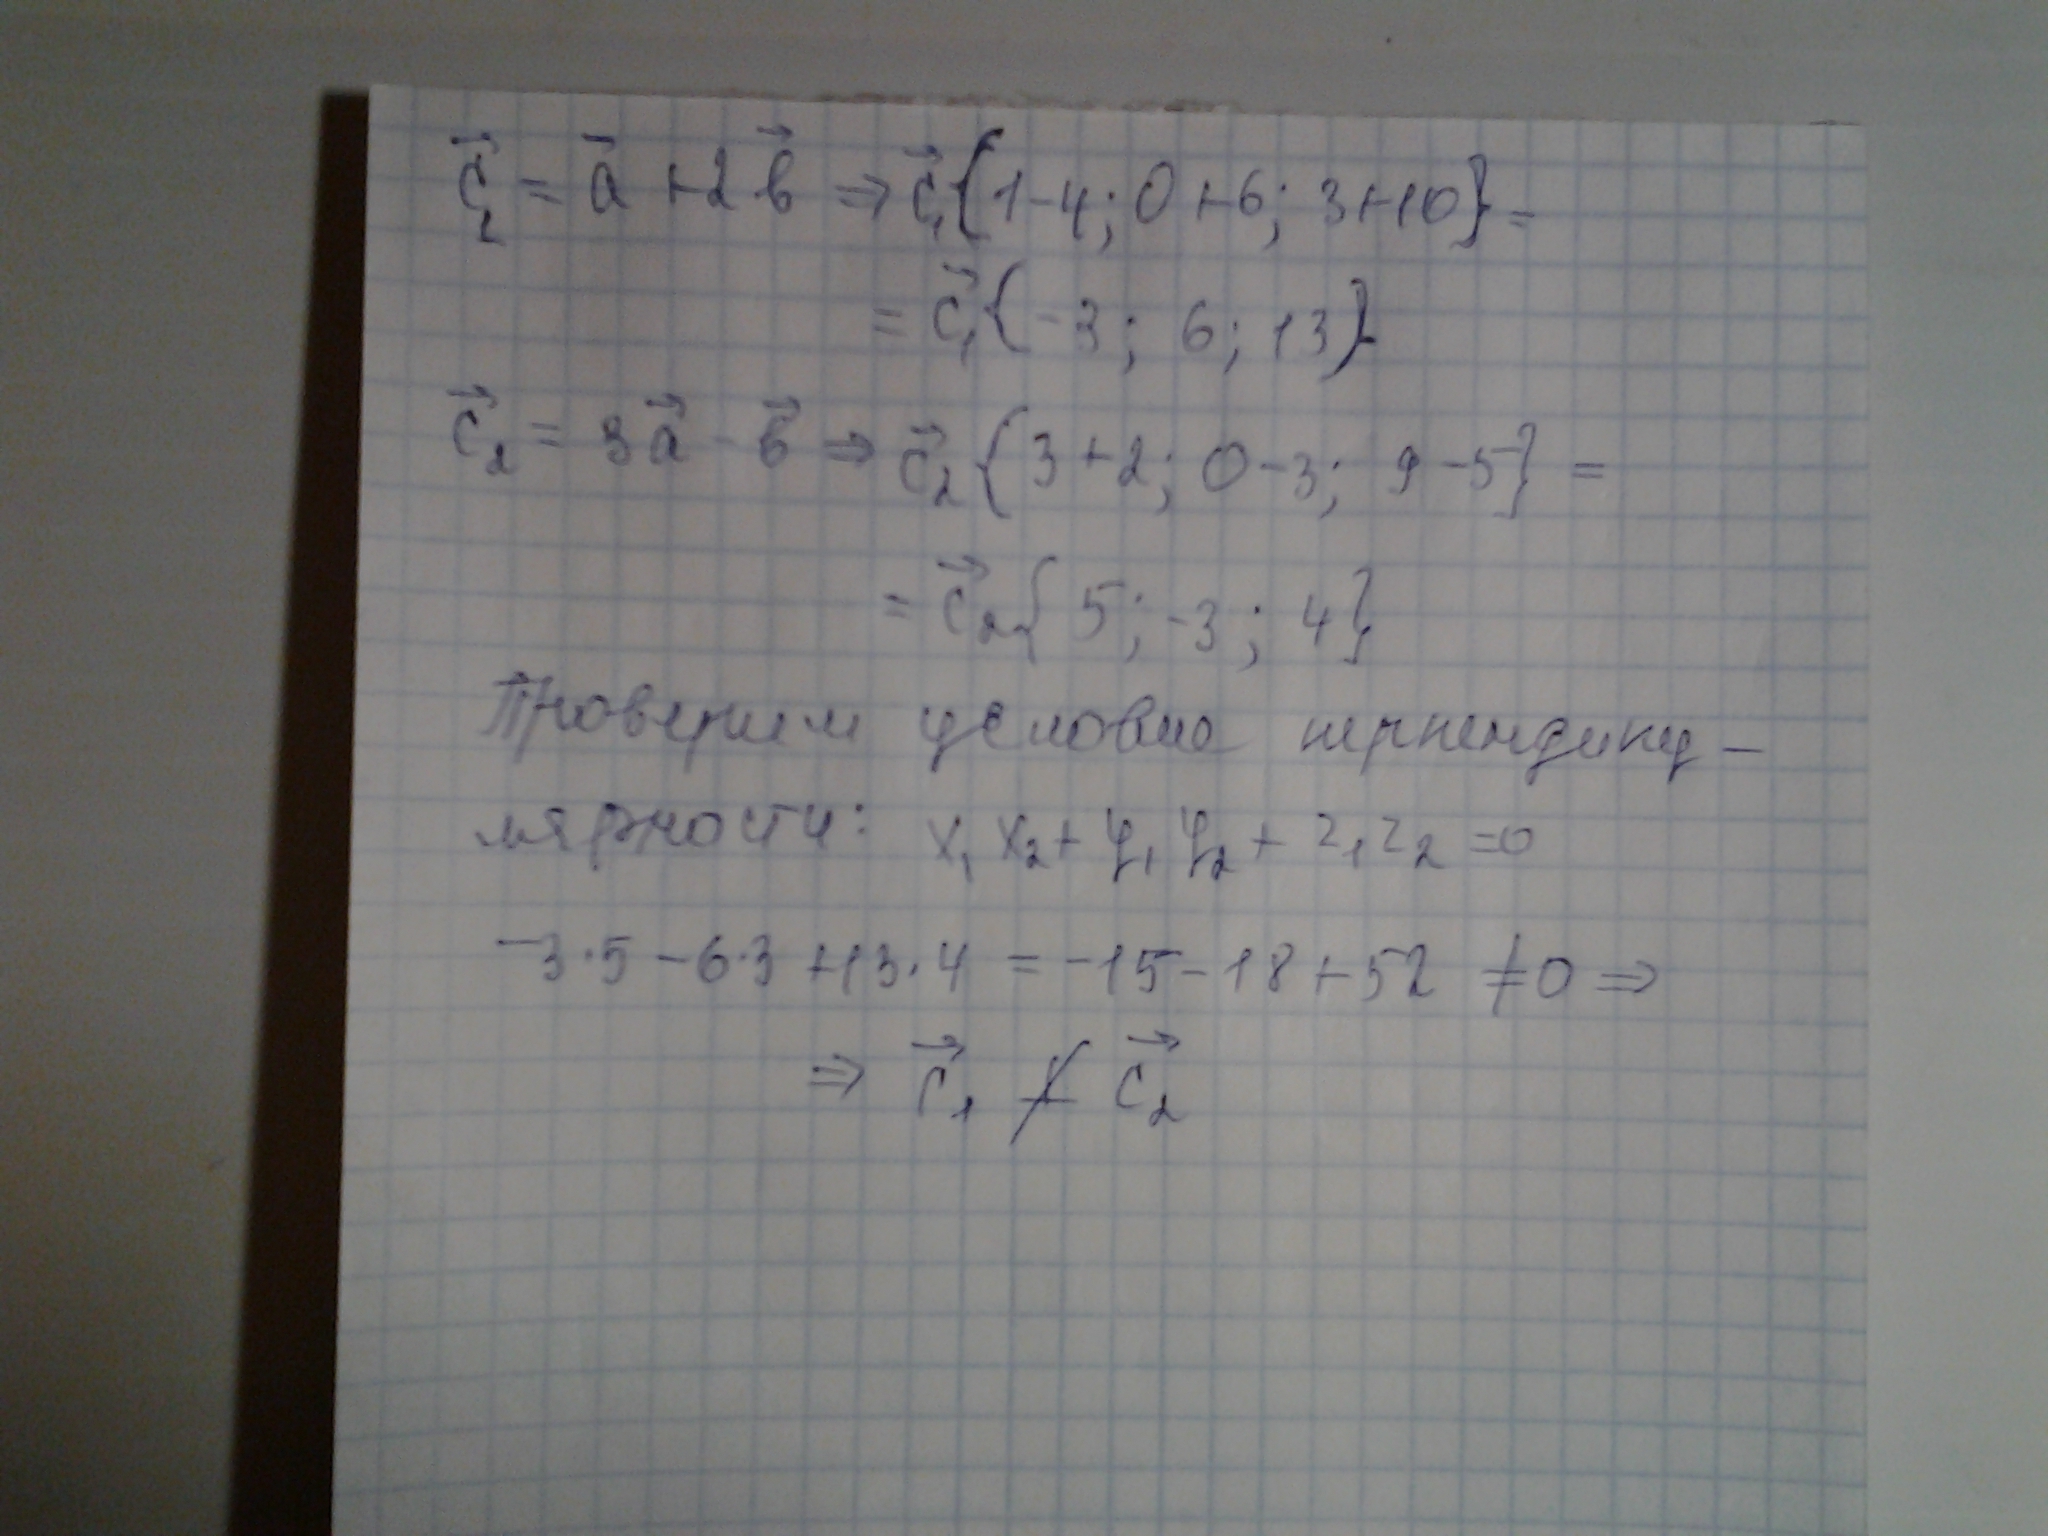 c⃗₁ = a⃗ + 2b⃗ ⇒ c⃗₁{1-4; 0+6; 3+10} =
= c⃗₁{-3; 6; 13}
c⃗₂ = 3a⃗ - b⃗ ⇒ c⃗₂{3+2; 0-3; 9-5} =
= c⃗₂{5; -3; 4}
Проверим условие перпендику-
лярности: x₁x₂ + y₁y₂ + z₁z₂ = 0
-3·5 - 6·3 + 13·4 = -15 - 18 + 52 ≠ 0 ⇒
⇒ c⃗₁ ⊥̸ c⃗₂